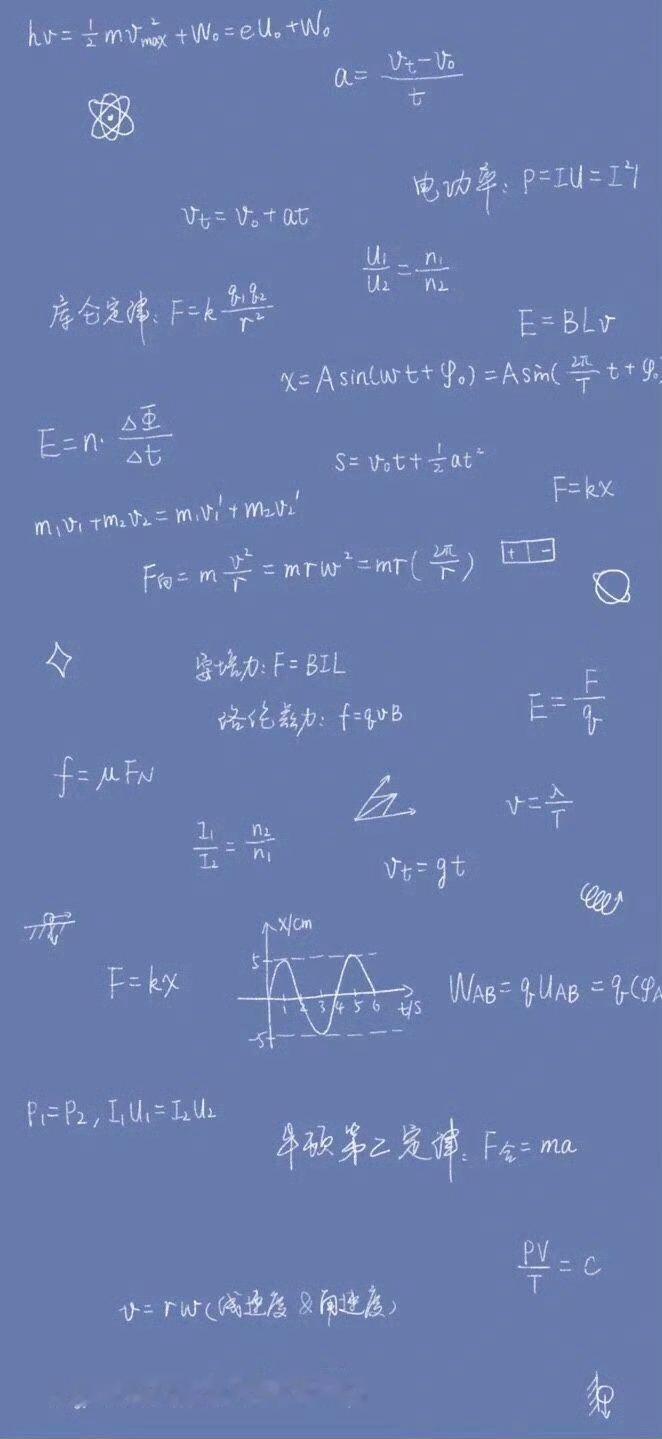 hν = 1/2 mv²max + W₀ = eU₀ + W₀
a = (vt - v₀)/t
电功率: P = IU = I²
vt = v₀ + at
U₁/U₂ = n₁/n₂
库仑定律: F = k q₁q₂/r²
E = BLv
x = A sin(wt + φ₀) = A sin(2π/T t + φ₀
E = n· ΔΦ/Δt
S = v₀t + 1/2 at²
F = kx
m₁v₁ + m₂v₂ = m₁v₁' + m₂v₂'
F向 = m v²/r = mrw² = mr(2π/r)
+ -
安培力: F = BIL
洛伦兹力: f = qvB
E = F/q
f = μFN
v = λ/T
I₁/I₂ = n₂/n₁
vt = gt
x/cm
5
1 2 3 4 5 6 t/s
-5
F = kx
WAB = qUAB = q(φA
P₁ = P₂, I₁U₁ = I₂U₂
牛顿第二定律: F合 = ma
PV/T = C
v = rw (线速度 & 角速度)